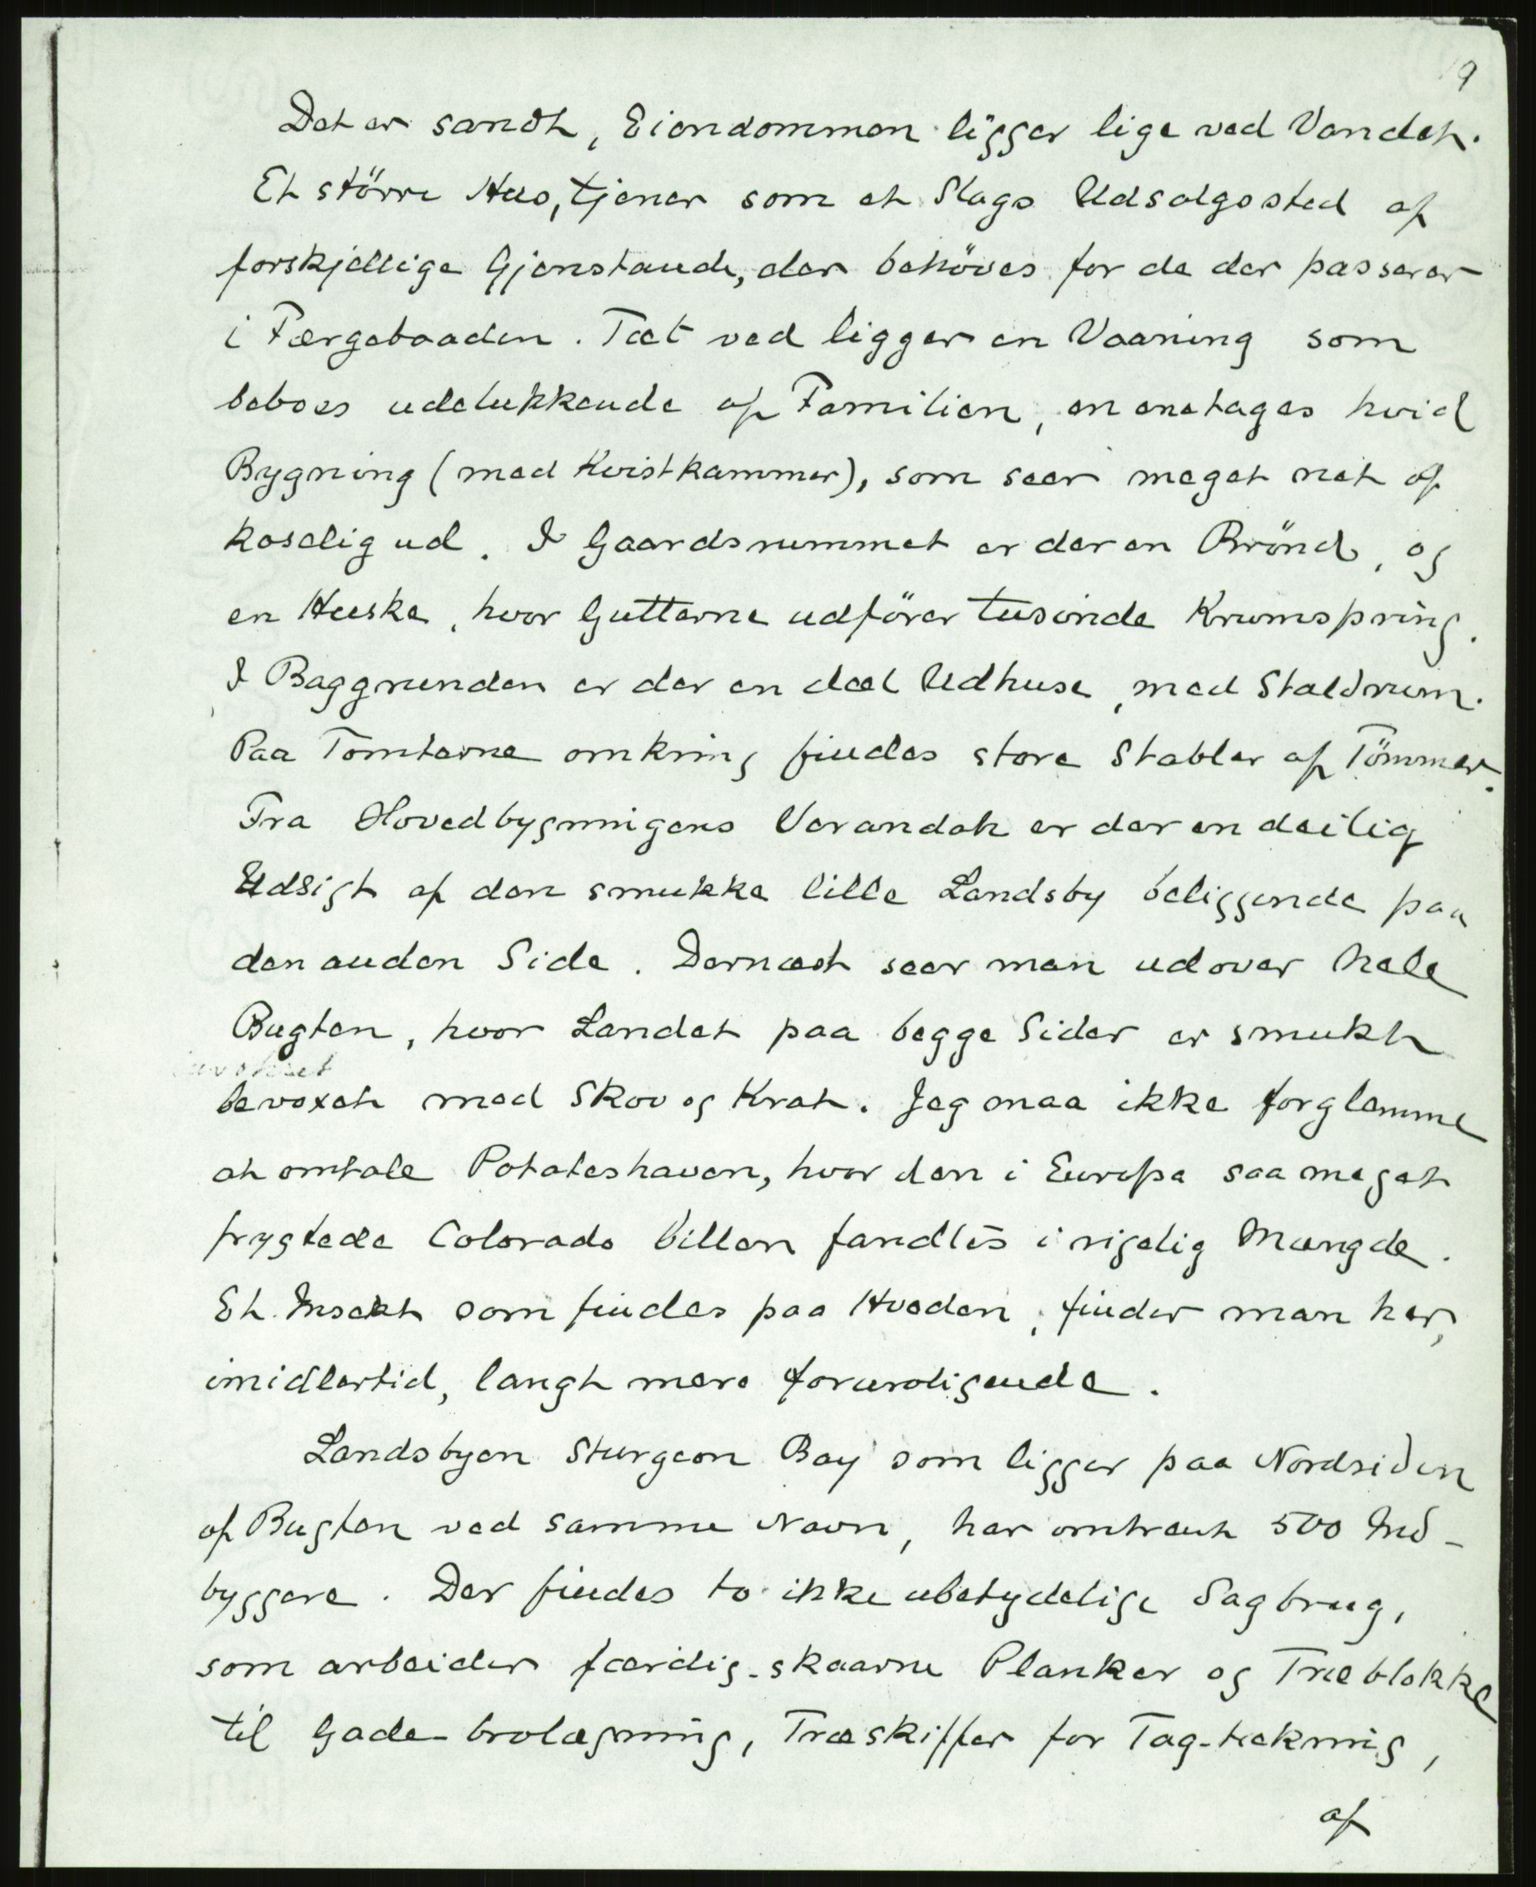 9
Det er sandt, Eiendommen ligger lige ved Vandet.
Et större Hus, tjener som et Slags Udsalgssted af
forskjellige Gjenstande, der behöves for de der passerer
i Færgebaaden. Tæt ved ligger en Vaaning som
beboes udelukkende af Familien, en enetages hvid
Bygning (med Kvistkammer), som seer meget net og
koselig ud. I Gaardsrummet er der en Brönd, og
en Huske, hvor Gutterne udförer tusinde Krumspring.
I Baggrunden er der en deel Udhuse, med Staldrum.
Paa Tomterne omkring findes store Stabler af Tömmer.
Fra Hovedbygningens Verandah er der en deilig
Udsigt af den smukke lille Landsby beliggende paa
den anden Side. Dernæst seer man udover hele
Bugten, hvor Landet paa begge Sider er smukt
bevoxet med Skov og Krat. Jeg maa ikke forglemme
at omtale Poteteshaven, hvor den i Europa saa meget
frygtede Colorado billen fandtes i rigelig Mængde.
Et Insekt som findes paa Hveden, finder man her,
imidlertid, langt mere foruroligende.
Landsbyen Sturgeon Bay som ligger paa Nordsiden
af Bugten ved samme Navn, har omtrent 500 Ind-
byggere. Der findes to ikke ubetydelige Sagbrug,
som arbeider færdig-skaarne Planker og Træblokke
til Gade-brolægning, Træskiffer for Tag-tækning,
af